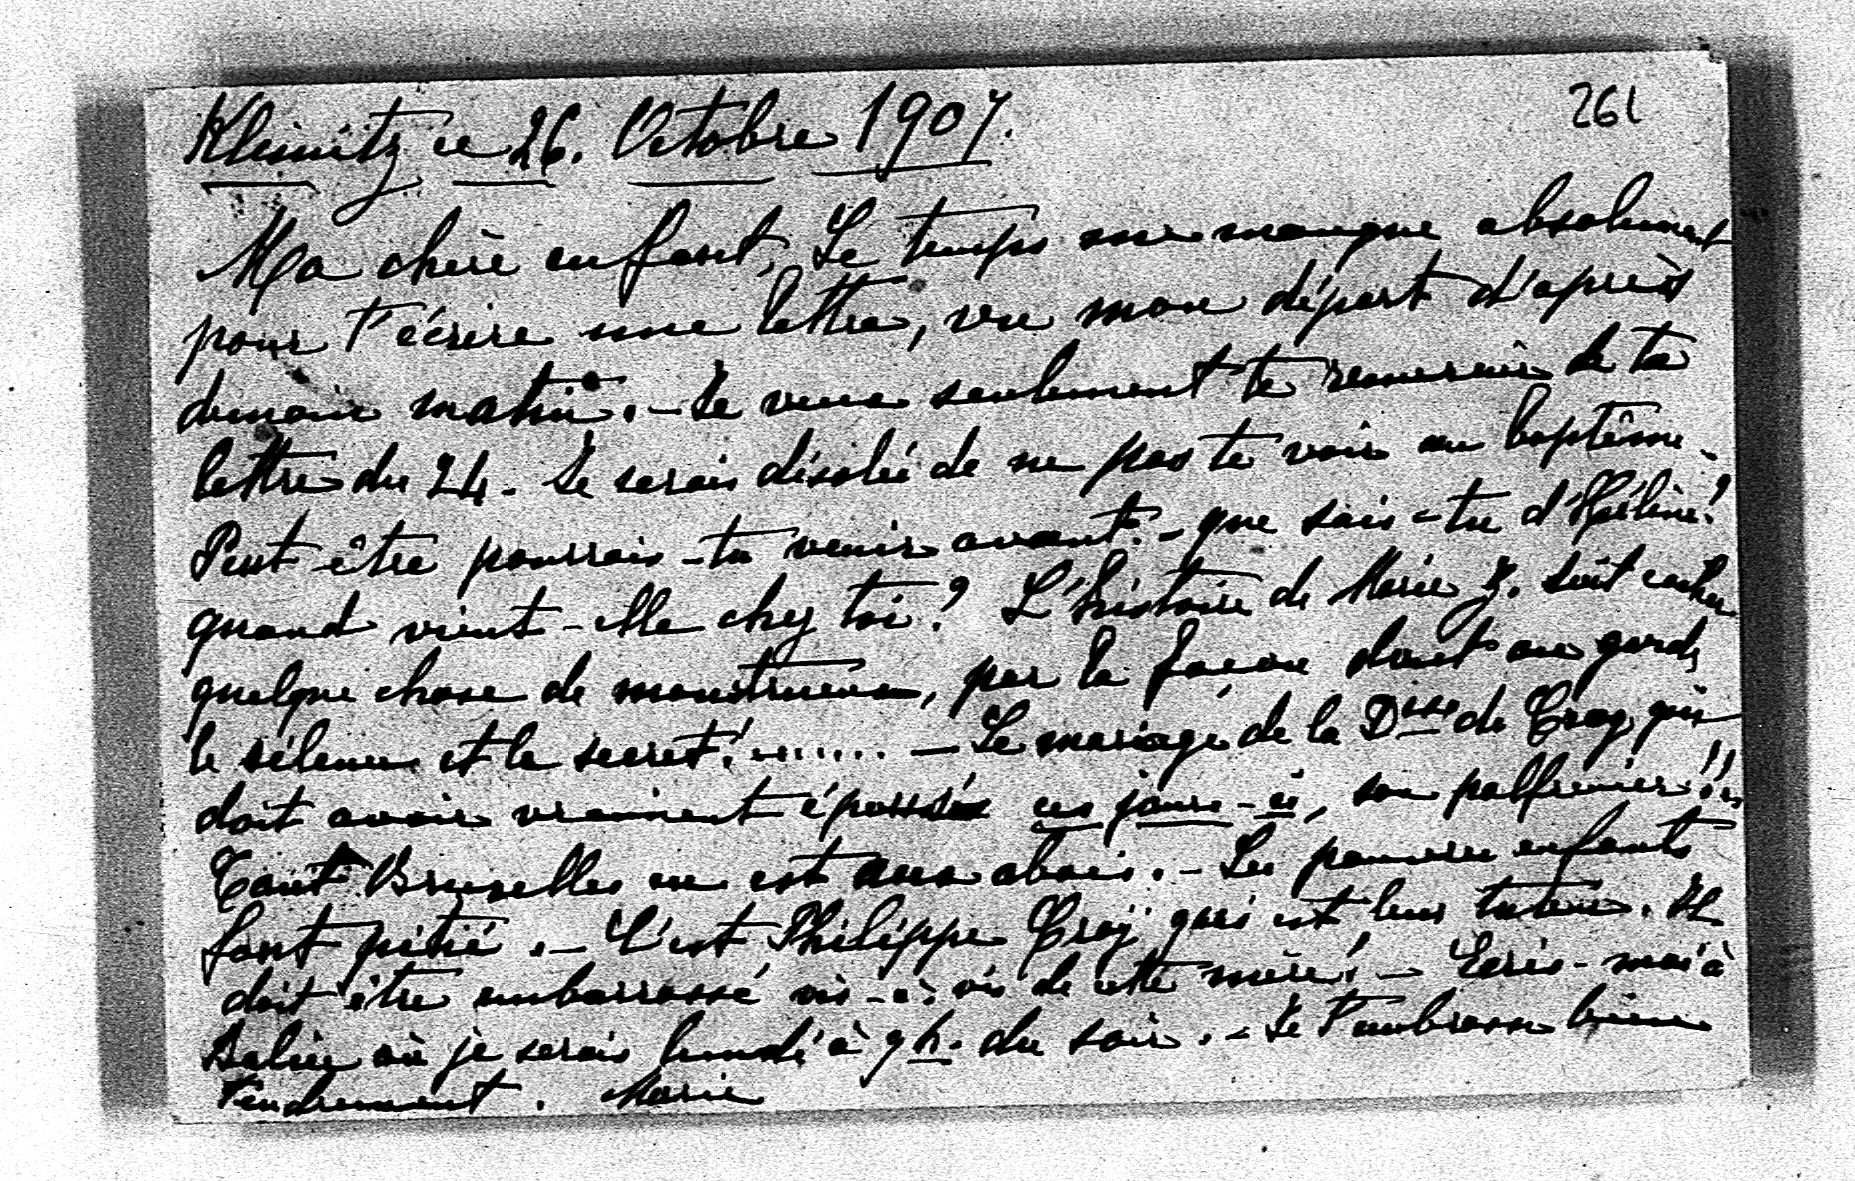 261
Kleinitz ce 26. Octobre 1907.
Ma chère enfant, Le temps me manque absolument
pour t'écrire une lettre, vu mon départ d'après
demain matin. - Je veux seulement te remercier de ta
lettre du 24. Je serais désolée de ne pas te voir au baptême.
Peut-être pourrais-tu venir avant. - que sais-tu d'Hélène?
quand vient-elle chez toi? L'histoire de Marie doit cacher
quelque chose de monstrueux, par la façon dont on garde
le silence et le secret!....... - Le mariage de la Dsse de Croy qui
doit avoir vraiment épousé ces jours-ci, son palfrenier!!!
Tout Bruxelles en est aux abois. - Les pauvres enfants
font pitié. - C'est Philippe Croÿ qui est leur tuteur. Il
doit être embarrassé vis-à-vis de cette mère! - Ecris-moi à
Berlin où je serais lundi à 9 h. du soir. - Je t'embrasse bien
tendrement. Marie